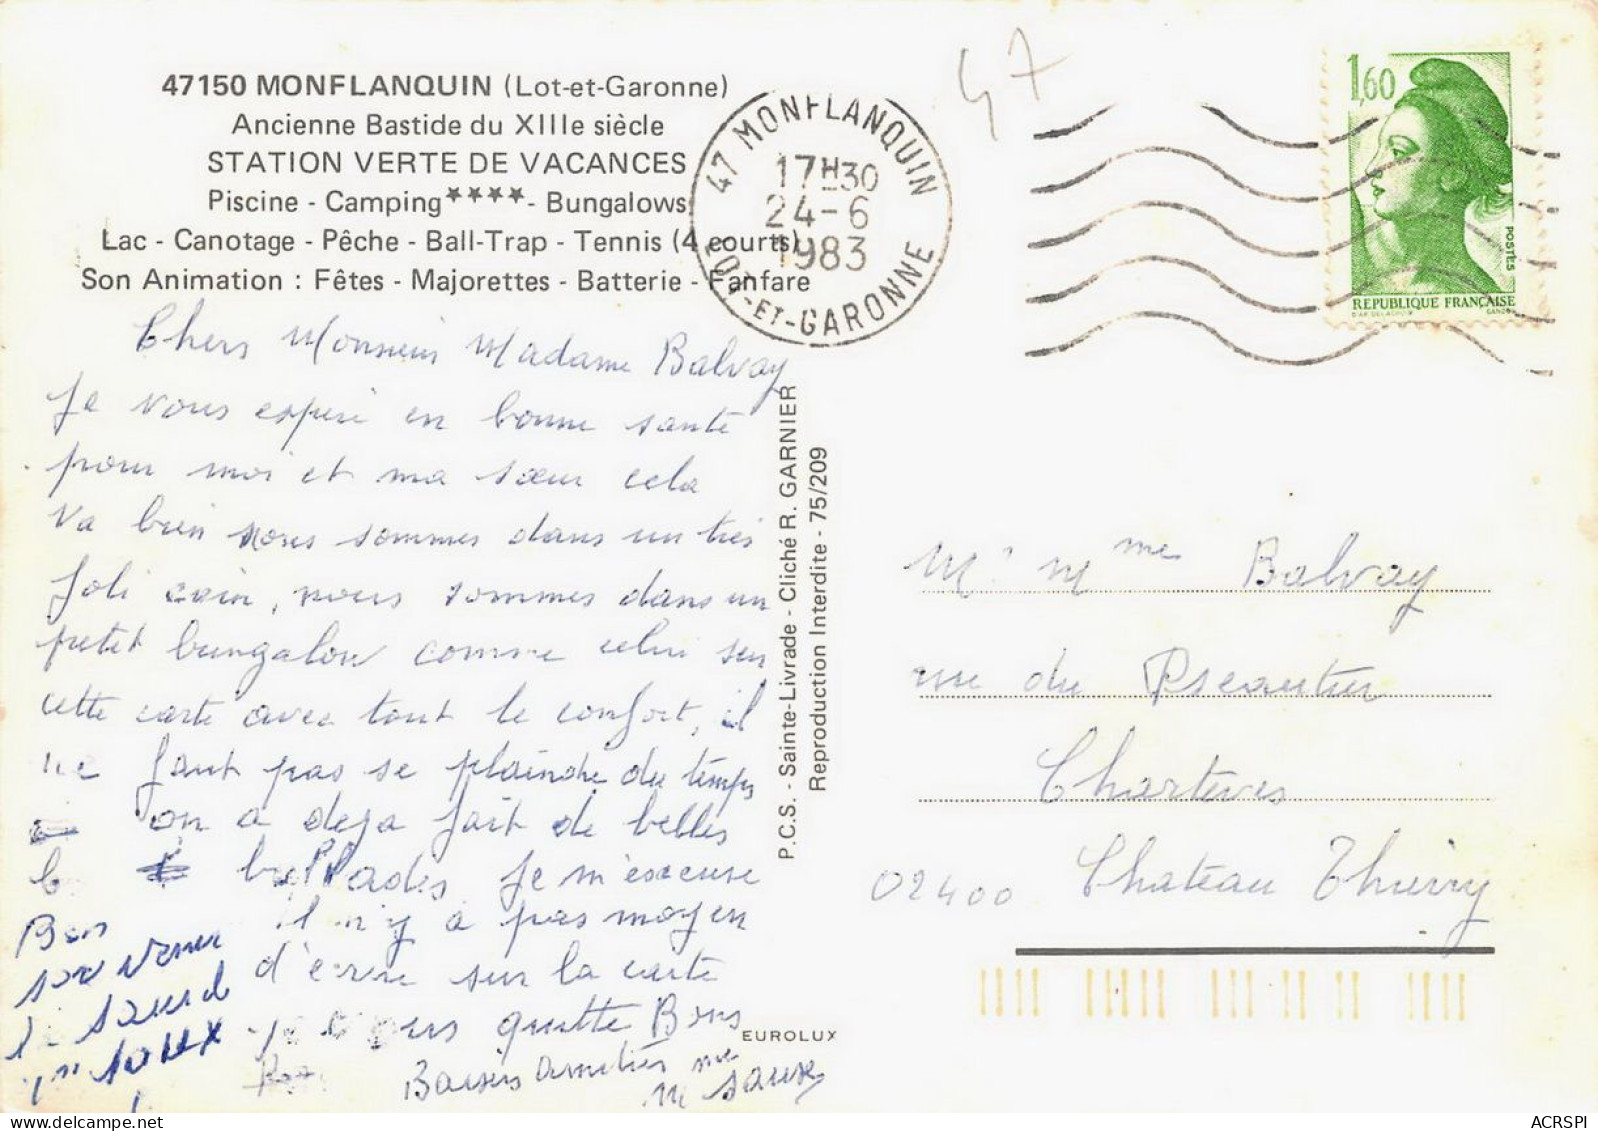 47150 MONFLANQUIN (Lot-et-Garonne)
Ancienne Bastide du XIIIe siècle
STATION VERTE DE VACANCES
Piscine - Camping **** - Bungalows
Lac - Canotage - Pêche - Ball-Trap - Tennis (4 courts)
Son Animation : Fêtes - Majorettes - Batterie - Fanfare
47 MONFLANQUIN
17H30
24-6
1983
LOT-ET-GARONNE
47
1,60
POSTES
REPUBLIQUE FRANÇAISE
D'AP. DELACROIX GANDON
Chers Monsieur Madame Balvay
Je vous esperé en bonne santé
pour moi et ma sœur cela
va bien nous sommes dans un très
Joli coin, nous sommes dans un
petit bungalow comme celui sur
cette carte avec tout le confort, il
ne faut pas se plaindre du temps
on a deja fait de belles
Je m'excuse
il n'y a pas moyen
d'écrire sur la carte
quitte Bons
Baisers Amitiés
Bon
souvenir
P.C.S. - Sainte-Livrade - Cliché R. GARNIER
Reproduction Interdite - 75/209
EUROLUX
Mr Mme Balvay
rue du
Chartèves
02400 Chateau Thierry
ACRSPI